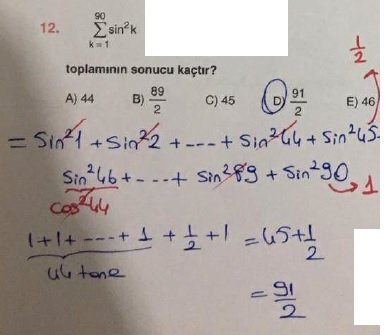 12. 90
∑ sin²k
k = 1
toplamının sonucu kaçtır?
A) 44 B) 89/2 C) 45 D) 91/2 E) 46
1/2
= Sin²1 + Sin²2 + --- + Sin²44 + Sin²45
Sin²46 + --- + Sin²89 + Sin²90 → 1
cos²44
1+1+ ---- + 1 + 1/2 + 1 = 45 + 1/2
44 tane
= 91/2